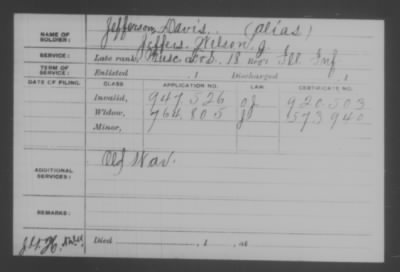 NAME OF SOLDIER: Jefferson Davis, (alias)
Jeffers. Wilson J.
SERVICE: Late rank, Musc 18 Reg't Ill Inf
TERM OF SERVICE: Enlisted , 1 Discharged , 1
DATE OF FILING CLASS APPLICATION NO. LAW CERTIFICATE NO.
Invalid, 947.526 920.503
Widow, 764.805 573940
Minor,
ADDITIONAL SERVICES: Old War.
REMARKS:
Died , 1 , at